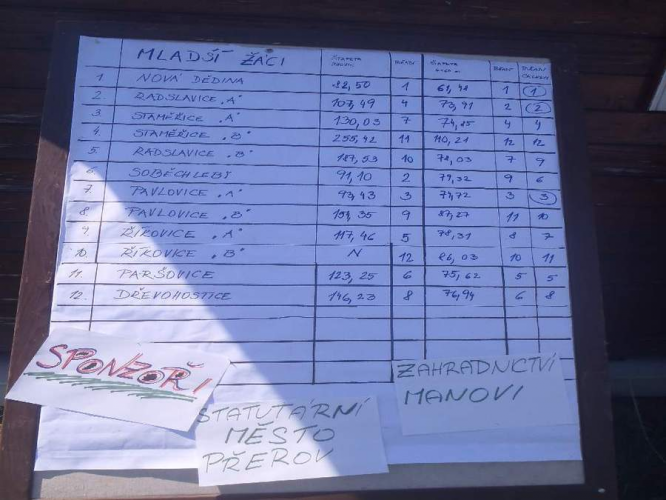 MLADŠÍ ŽÁCI ŠTAFETA POŽÁR. POŘADÍ ŠTAFETA POŘADÍ POŘADÍ CELKOVÉ
1. NOVÁ DĚDINA 88,50 1 61,48 1 1
2. RADSLAVICE „A" 107,49 4 73,41 2 2
3. STAMĚŘICE „A" 130,03 7 74,25 4 4
4. STAMĚŘICE „B" 255,42 11 110,21 12 12
5. RADSLAVICE „B" 187,53 10 78,03 7 9
6. SOBĚCHLEBY 91,10 2 79,32 9 6
7. PAVLOVICE „A" 97,43 3 74,72 3 3
8. PAVLOVICE „B" 151,35 9 87,27 11 10
9. ŘÍKOVICE „A" 117,46 5 78,31 8 7
10. ŘÍKOVICE „B" N 12 86,03 10 11
11. PARŠOVICE 123,25 6 75,62 5 5
12. DŘEVOHOSTICE 146,23 8 76,94 6 8
SPONZOŘI
STATUTÁRNÍ
MĚSTO
PŘEROV
ZAHRADNICTVÍ
MANOVI